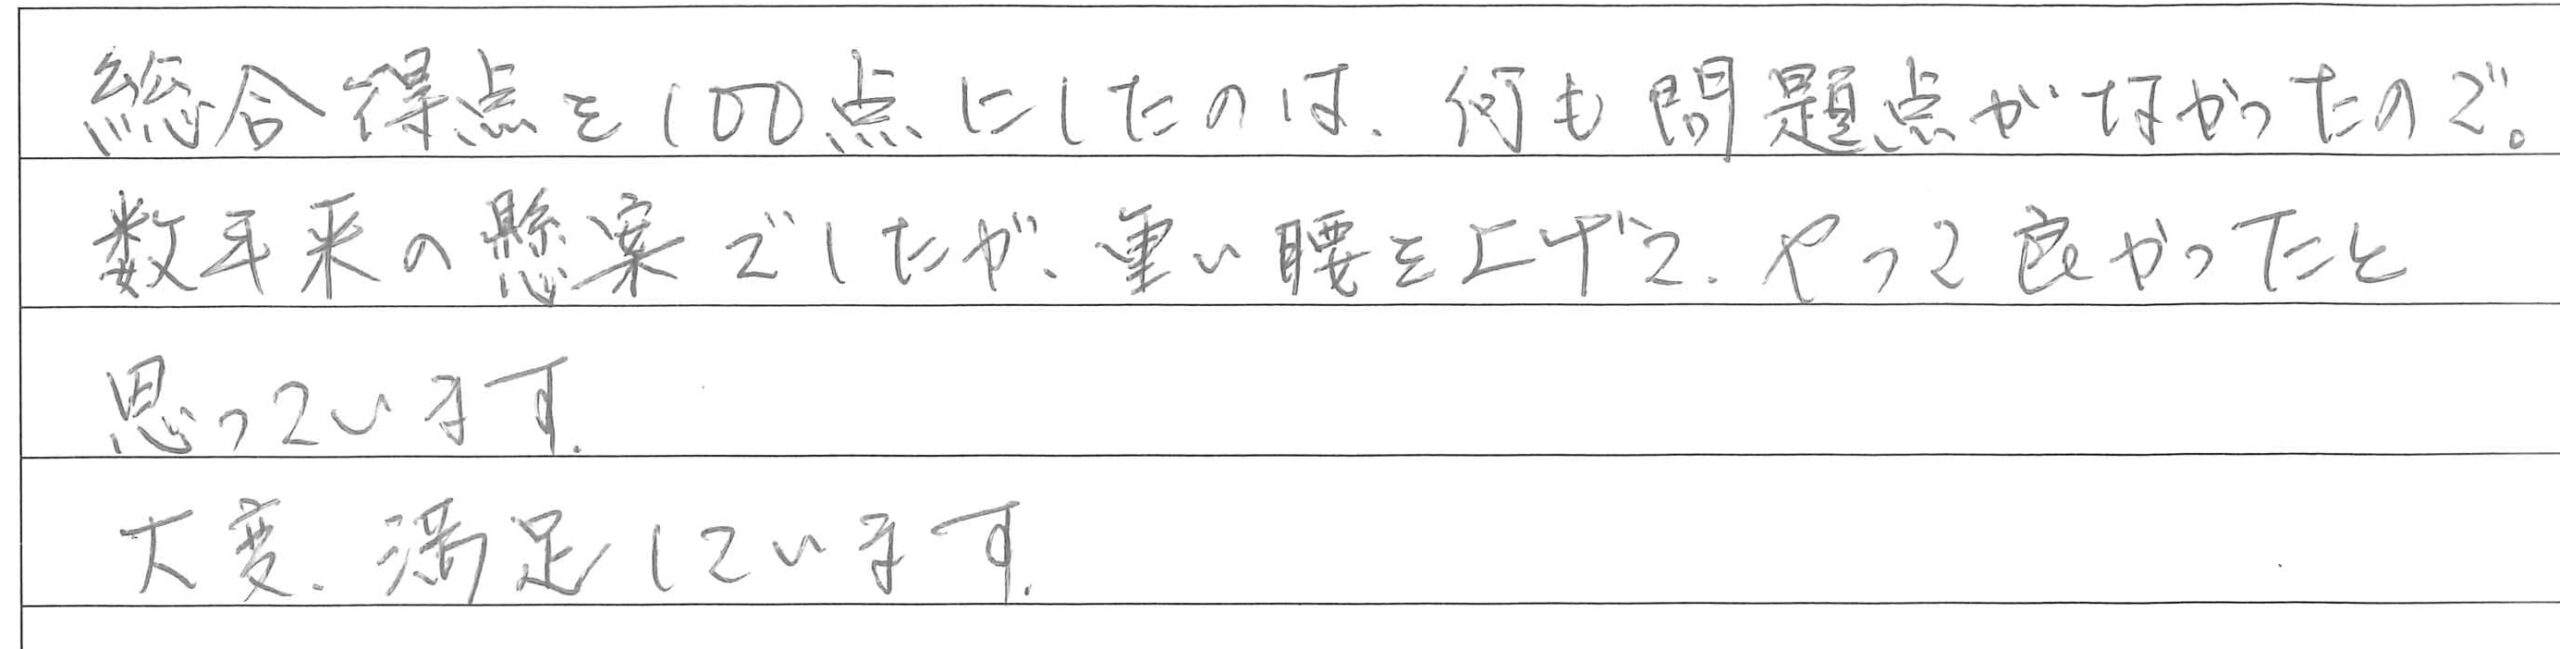 総合得点を100点にしたのは、何も問題点がなかったので。
数年来の懸案でしたが、重い腰を上げて、やって良かったと
思っています。
大変、満足しています。